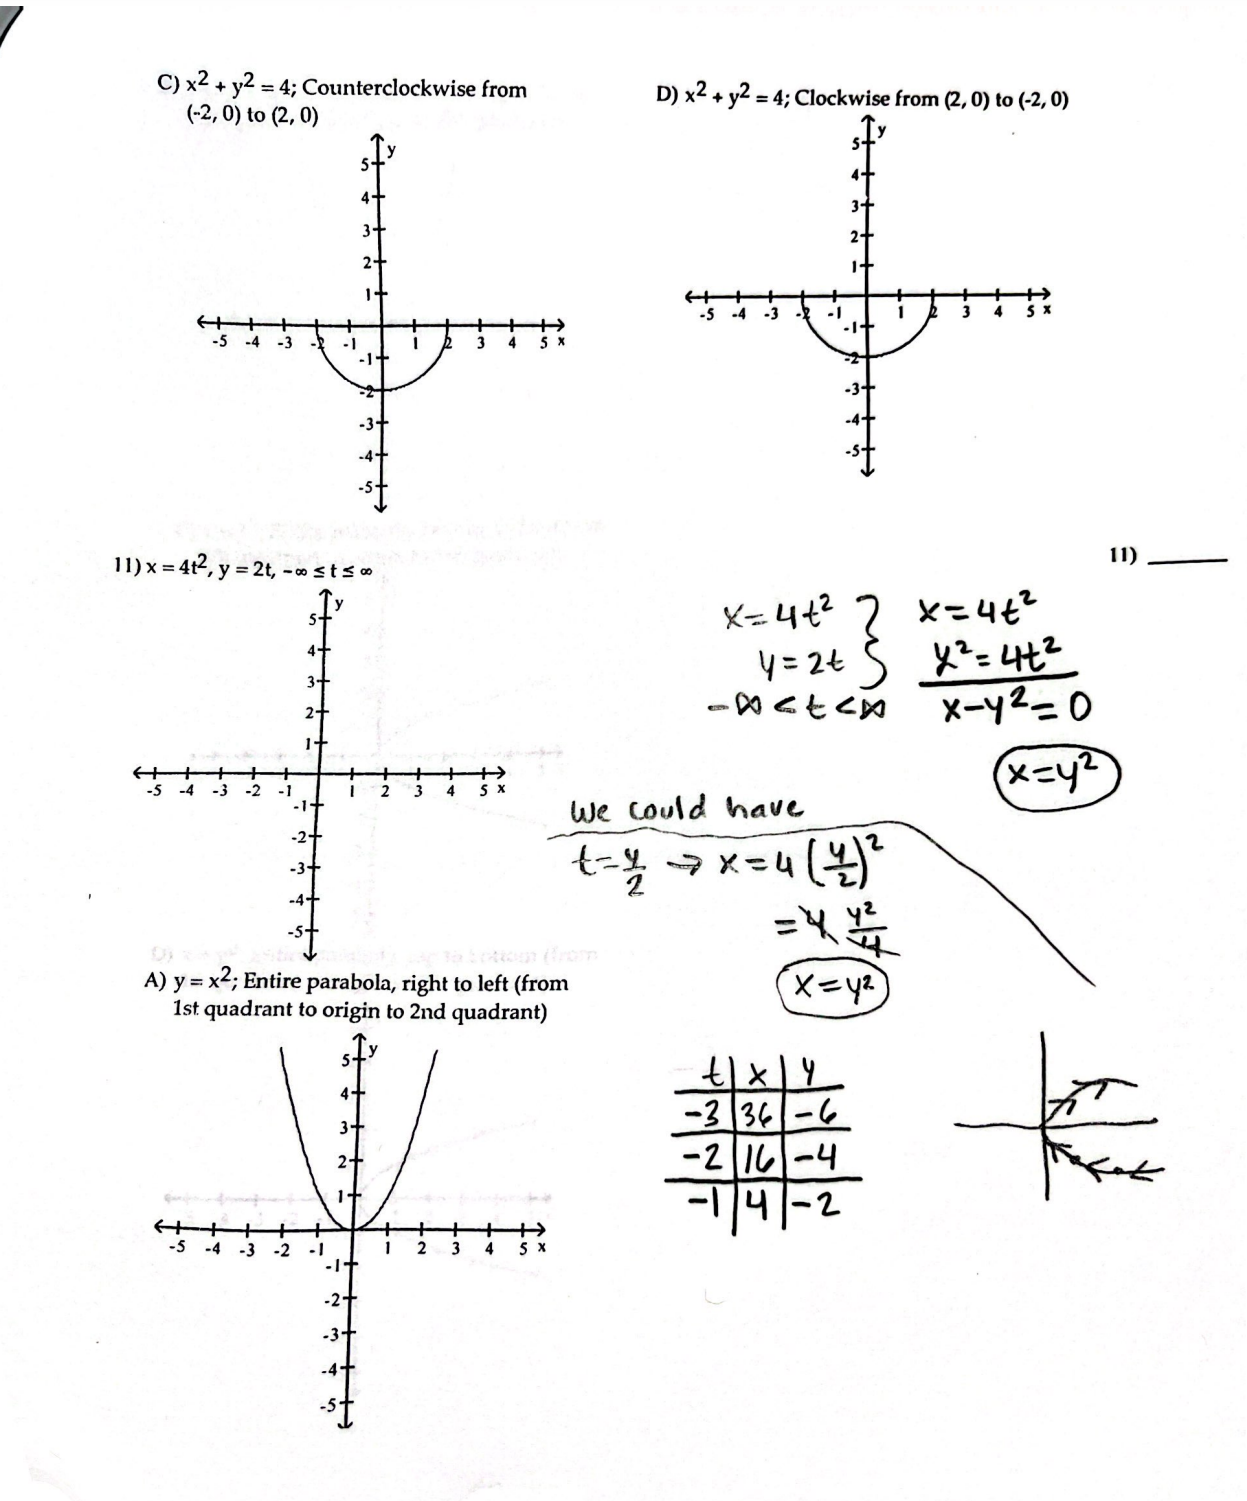 C) x² + y² = 4; Counterclockwise from
(-2, 0) to (2, 0)
D) x² + y² = 4; Clockwise from (2, 0) to (-2, 0)
y
5
4
3
2
1
-5 -4 -3 -2 -1 1 2 3 4 5 x
-1
-2
-3
-4
-5
y
5
4
3
2
1
-5 -4 -3 -2 -1 1 2 3 4 5 x
-1
-2
-3
-4
-5
11) x = 4t², y = 2t, -∞ ≤ t ≤ ∞
11)
y
5
4
3
2
1
-5 -4 -3 -2 -1 1 2 3 4 5 x
-1
-2
-3
-4
-5
x=4t² } x=4t²
y=2t y²=4t²
-∞<t<∞ x-y²=0
x=y²
We could have
t=y/2 → x=4(y/2)²
=4 y²/4
x=y²
A) y = x²; Entire parabola, right to left (from
1st quadrant to origin to 2nd quadrant)
y
5
4
3
2
1
-5 -4 -3 -2 -1 1 2 3 4 5 x
-1
-2
-3
-4
-5
t x y
-3 36 -6
-2 16 -4
-1 4 -2